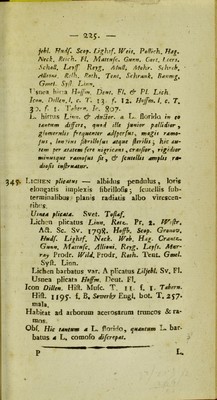 — 225. —
jobl. Hudf. Scop. Lightf. Weis, Pollich, Hag.
Neck. Reich. Fl. Mattusc. Gunn. Cart. Leers.
Schall, Leyss. Reyg. Allott. Mohr. Schreb.
Allione, Relh. Roth, Tent. Schrank, Baumg.
Gmel. Syst. Linn.
Usnea hirta Hoffm. Deut. Fl. & Pl. Lich.
Icon. Dillen. l. c. T. 13. f. 12. Hoffm. l. c. T.
30. f. 1. Tabern. ic. 807.
L. hirtus Linn. & Auctor. a L. florido in eo
tantum differt, quod ille junior pallidior,
glomerulis frequenter adspersus, magis ramo-
sus, lenius fibrillosus atque sterilis, hic au-
tem per aetatem fere nigricans, crassior, rigidior
minusque ramosus sit, & scutellis amplis ra-
diatis instruatur.
349. LICHEN plicatus — albidus pendulus, loris
elongatis implexis fibrillosis; scutellis sub-
terminalibus: planis radiatis albo virescen-
tibus.
Usnea plicata. Svet. Testaf.
Lichen plicatus Linn, Retz. Pr. 2. Westr.
Act. Sc. Sv. 1798. Hoffb. Scop. Gronov,
Hudf. Lightf. Neck. Web, Hag. Crantz.
Gunn, Mattusc. Allioni, Reyg. Leyss. Mur-
ray Prodr. Wild. Prodr. Roth. Tent. Gmel.
Syst. Linn.
Lichen barbatus var. A plicatus Liljebl. Sv. Fl.
Usnea plicata Hoffm. Deut. Fl.
Icon Dillen. Hist. Musc. T. 11. f. 1. Tabern.
Hist. 1195. f. B, Sowerby Engl. bot. T, 257.
mala.
Habitat ad arborum acerosarum truncos & ra-
mos.
Obs. Hic tantum a L. florido, quantum L. bar-
batus a L. comoso discrepat.
P L,